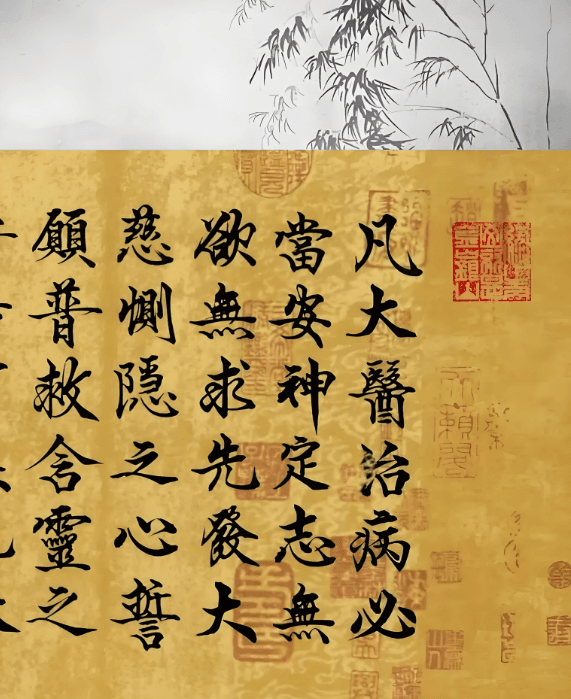 凡大醫治病必
當安神定志無
欲無求先發大
慈惻隱之心誓
願普救含靈之